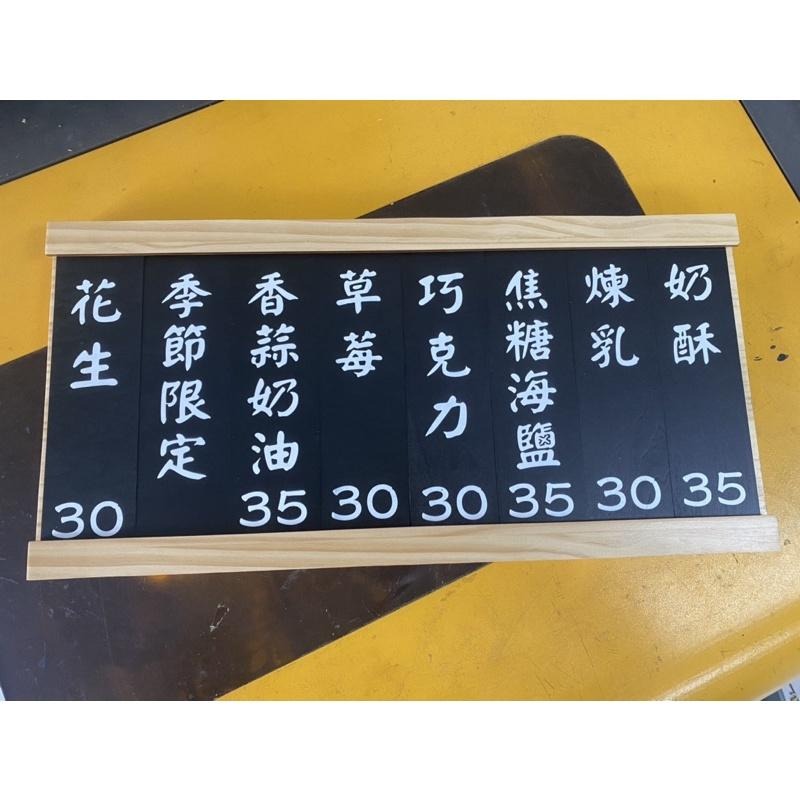 奶酥 35
煉乳 30
焦糖海鹽 35
巧克力 30
草莓 30
香蒜奶油 35
季節限定
花生 30